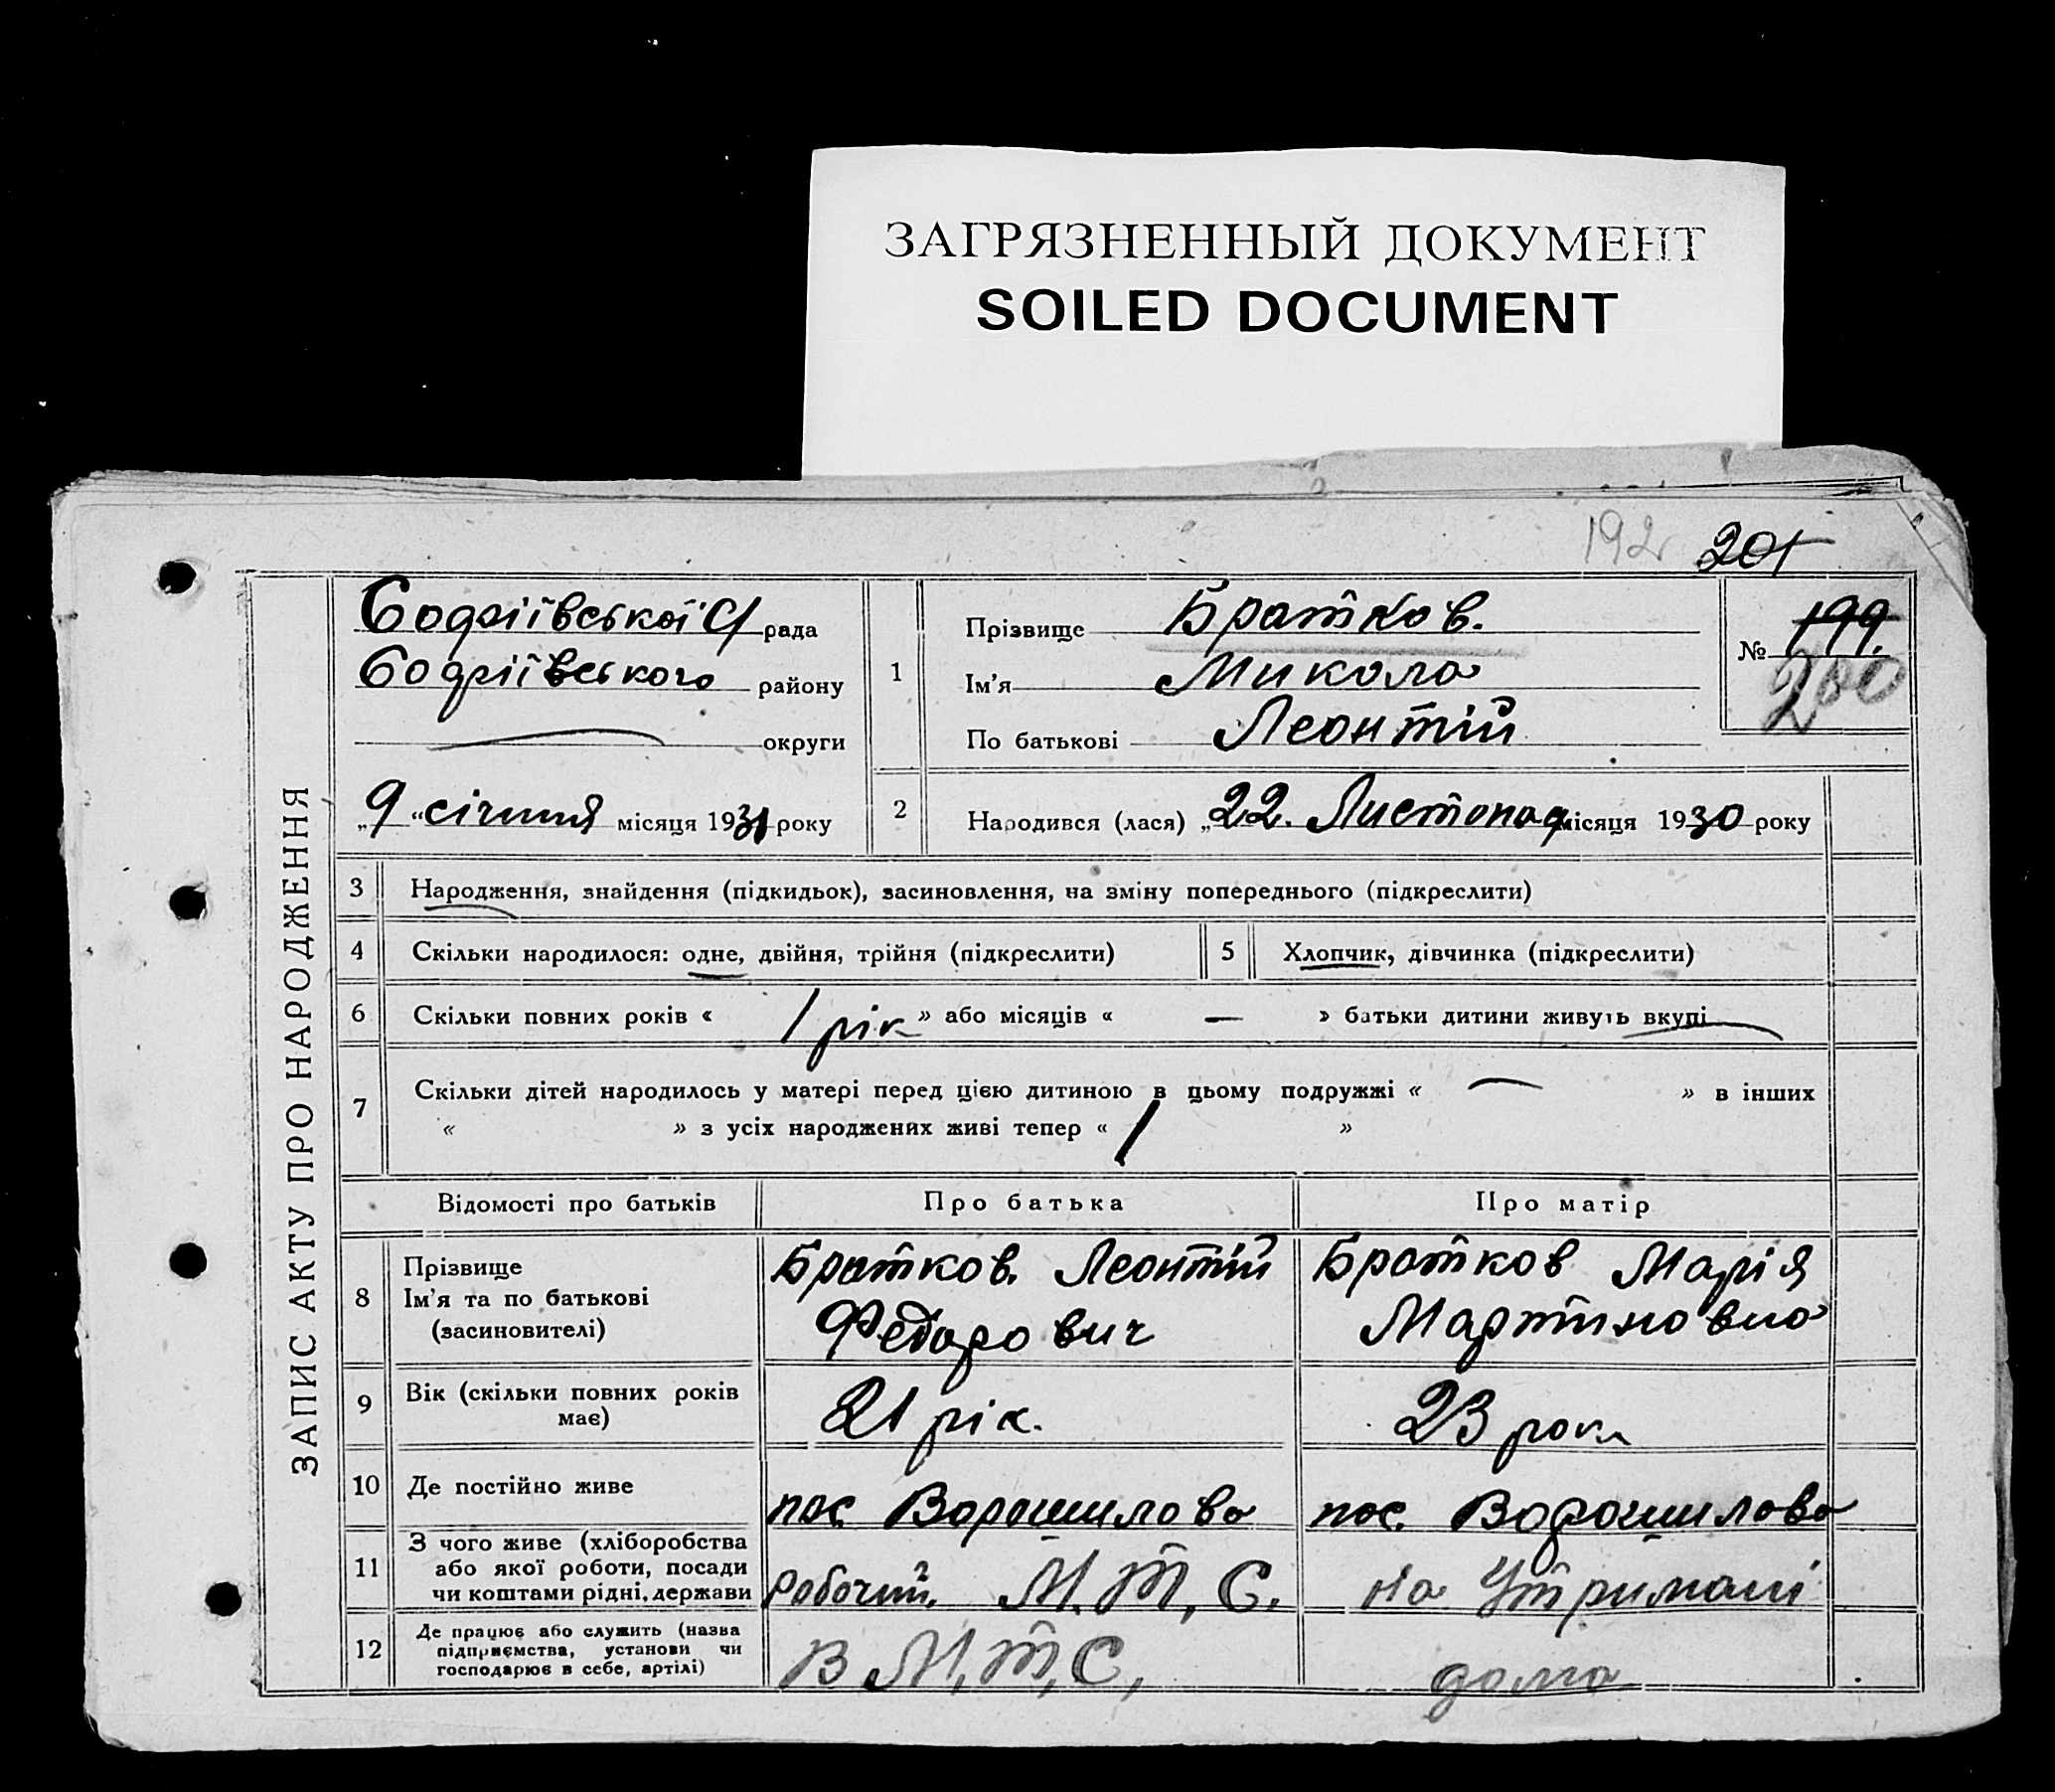 ЗАГРЯЗНЕННЫЙ ДОКУМЕНТ
SOILED DOCUMENT
192 201
ЗАПИС АКТУ ПРО НАРОДЖЕННЯ
рада
району
округи
„9“ січння місяця 1931 року
1
Прізвище Братков.
Ім'я Микола
По батькові Леонтій
№ 199.
200
2 Народився (лася) „22. Листопад місяця 1930 року
3 Народження, знайдення (підкидьок), засиновлення, на зміну попереднього (підкреслити)
4 Скільки народилося: одне, двійня, трійня (підкреслити) 5 Хлопчик, дівчинка (підкреслити)
6 Скільки повних років « 1 рік » або місяців « — » батьки дитини живуть вкупі
7 Скільки дітей народилось у матері перед цією дитиною в цьому подружжі « — » в інших
« » з усіх народжених живі тепер « 1 »
Відомості про батьків Про батька Про матір
8 Прізвище
Ім'я та по батькові
(засиновителі)
Братков. Леонтій
Федорович
Братков Марія
Мартиновна
9 Вік (скільки повних років
має)
21 рік.
23 роки
10 Де постійно живе пос. Ворошилова пос. Ворошилова
11 З чого живе (хліборобства
або якої роботи, посади
чи коштами рідні, держави
робочий. М.Т.С.
на Утримані
12 Де працює або служить (назва
підприємства, установи чи
господарює в себе, артілі)
в М,Т,С,
дома